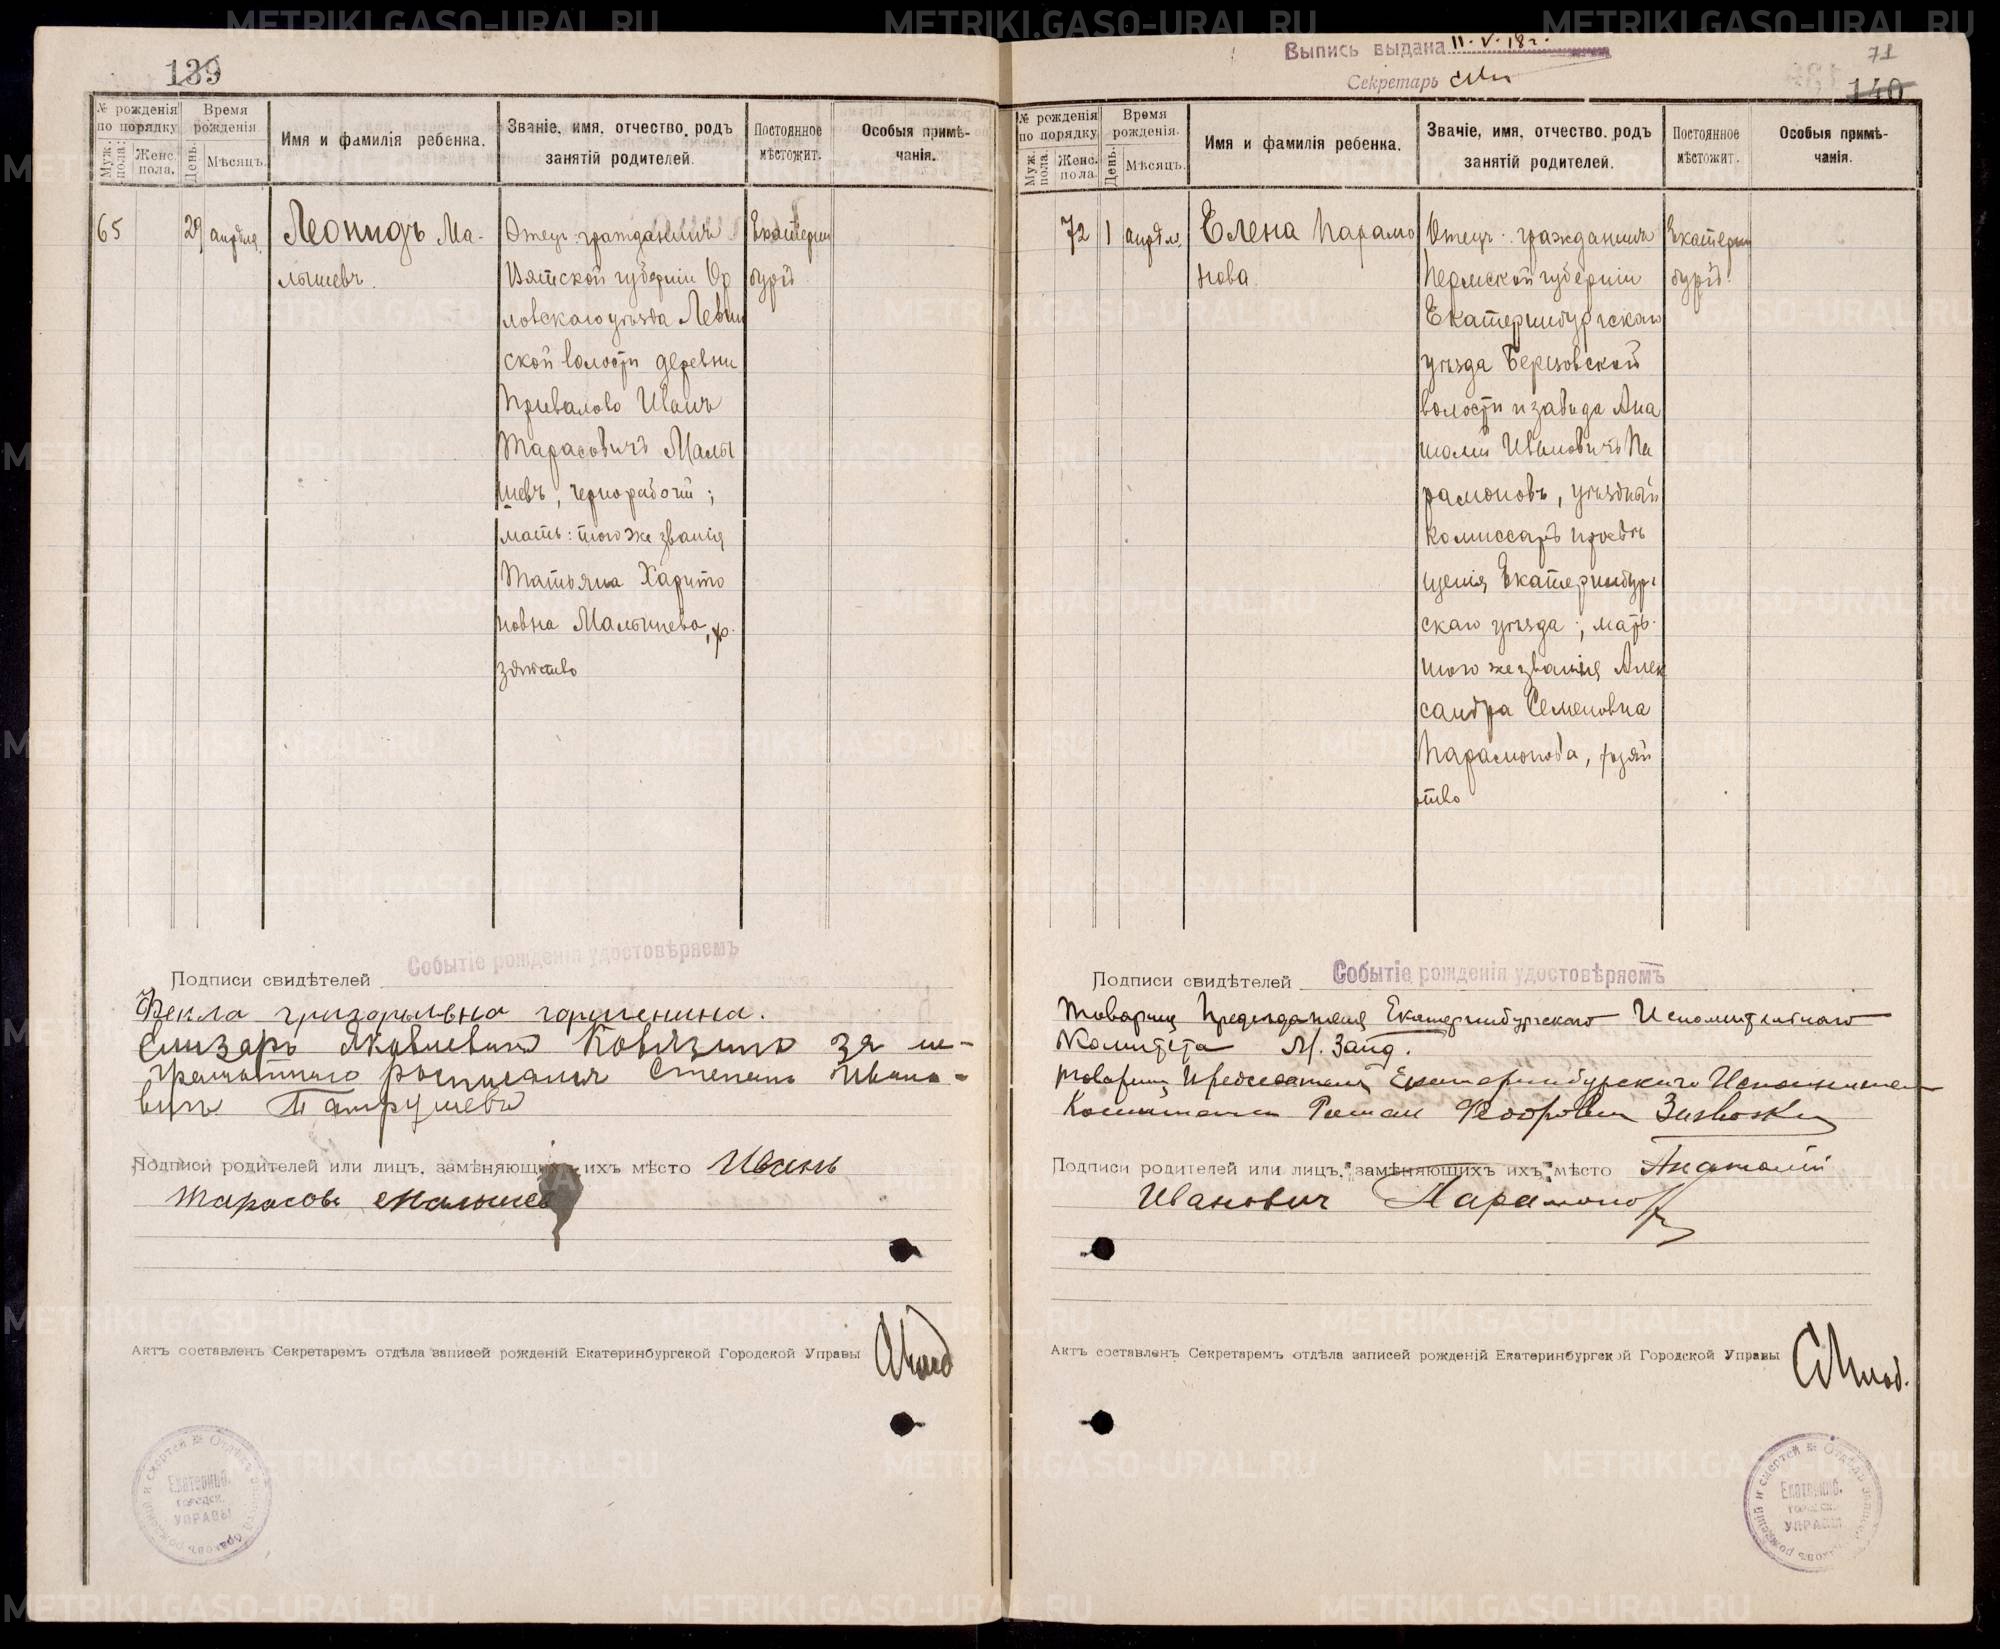 139
№ рожденія по порядку
Муж. пола.
Женс. пола.
Время рожденія
День.
Мѣсяцъ.
Имя и фамилія ребенка.
Званіе, имя, отчество, родъ занятій родителей.
Постоянное мѣстожит.
Особыя примѣчанія.
65
29 апрѣля
Леонидъ Ма-
лышевъ.
Отецъ: гражданинъ
Вятской губерніи Ор
ловскаго уѣзда Левин
ской волости деревни
Привалово Иванъ
Тарасовичъ Малы
шевъ, чернорабочій;
мать: того же званія
Татьяна Харито
новна Малышева, хо.
зяйство
Екатерин
бургъ
Событіе рожденія удостовѣряемъ
Подписи свидѣтелей
Фекла григорьевна
Елизаръ Яковлевичъ Ковязинъ за не-
грамотнаго росписался Степанъ Ивано-
вичъ Патрушевъ
Подписи родителей или лицъ, замѣняющихъ ихъ мѣсто Иванъ
Тарасовъ Малышев
Актъ составленъ Секретаремъ отдѣла записей рожденій Екатеринбургской Городской Управы
Екатеринб.
городск.
УПРАВЫ
Выпись выдана 11.V.18г.
Секретарь
71
140
№ рожденія по порядку
Муж. пола.
Женс. пола
Время рожденія.
День.
Мѣсяцъ.
Имя и фамилія ребенка.
Званіе, имя, отчество, родъ занятій родителей.
Постоянное мѣстожит.
Особыя примѣчанія.
72
1 апрѣля
Елена Парамо
нова
Отецъ: гражданинъ
Пермской губерніи
Екатеринбургскаго
уѣзда Березовской
волости и завода Ана
толій Ивановичъ Па
рамоновъ, уѣздный
комиссаръ просвѣ
щенія Екатеринбург
скаго уѣзда; мать:
того же званія Алек
сандра Семеновна
Парамонова, хозяй
ство
Екатерин
бургъ.
Событіе рожденія удостовѣряемъ
Подписи свидѣтелей
Товарищ Председателя Екатеринбургского Исполнительного
Комитета
Товарищ Председателя Екатеринбургского Исполнительн
Комитета Роман Федорович
Подписи родителей или лицъ, замѣняющихъ ихъ мѣсто Анатолій
Иванович Парамонов
Актъ составленъ Секретаремъ отдѣла записей рожденій Екатеринбургской Городской Управы
Екатеринб.
городск.
УПРАВЫ
METRIKI.GASO-URAL.RU